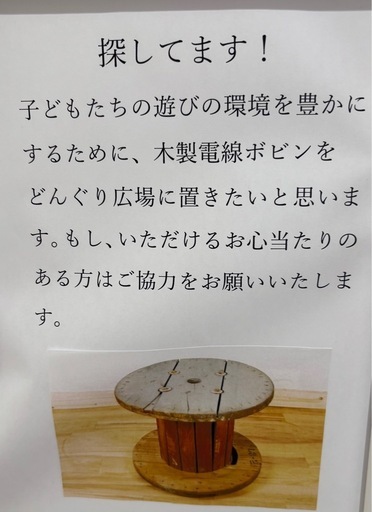 探してます！
子どもたちの遊びの環境を豊かに
するために、木製電線ボビンを
どんぐり広場に置きたいと思いま
す。もし、いただけるお心当たりの
ある方はご協力をお願いいたしま
す。